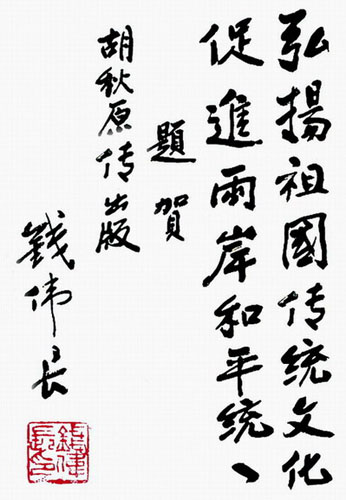 弘揚祖國传统文化
促進兩岸和平统一
題賀
胡秋原传出版
錢伟长
錢偉長印